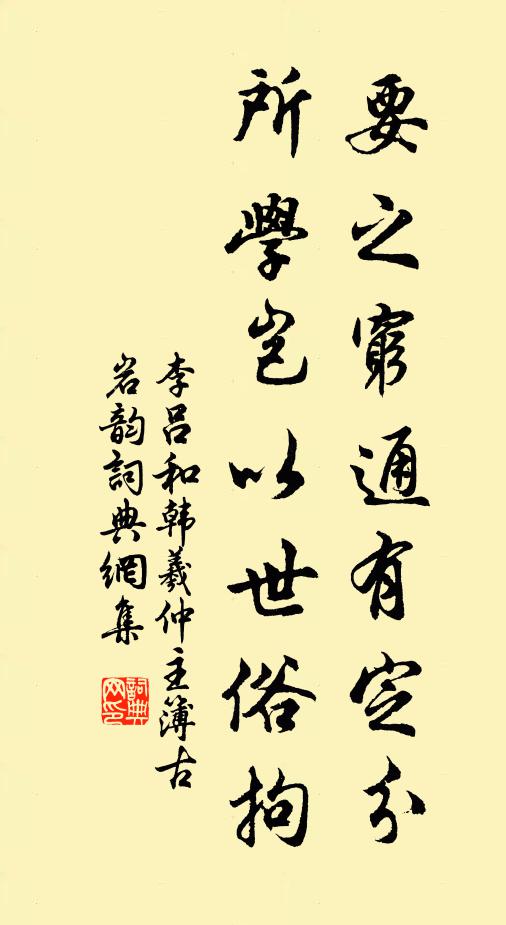 要之窮通有定分
所學岂以世俗拘
李吕和韩羲仲主簿古
岩韵詞典網集
詞典
网印